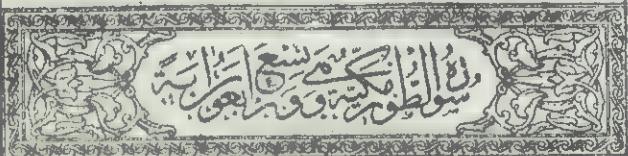 سورة الطور مكية وهى تسع واربعون آية